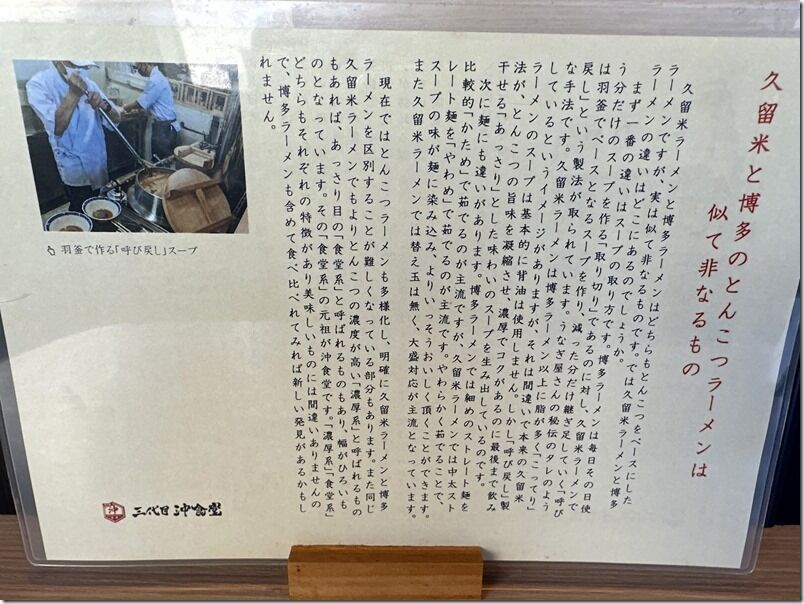 久留米と博多のとんこつラーメンは
似て非なるもの
久留米ラーメンと博多ラーメンはどちらもとんこつをベースにした
ラーメンですが、実は似て非なるものです。では久留米ラーメンと博多
ラーメンの違いはどこにあるのでしょうか。
まず一番の違いはスープの取り方です。博多ラーメンは毎日その日使
う分だけのスープを作る「取り切り」であるのに対し、久留米ラーメンで
は羽釜でベースとなるスープを作り、減った分だけ継ぎ足していく「呼び
戻し」という製法が取られています。うなぎ屋さんの秘伝のタレのよう
な手法です。久留米ラーメンは博多ラーメン以上に脂が多く「こってり」
しているというイメージがありますが、それは間違いで本来の久留米
ラーメンのスープは基本的に背油は使用しません。しかし「呼び戻し」製
法が、とんこつの旨味を凝縮させ、濃厚でコクがあるのに最後まで飲み
干せる「あっさり」とした味わいのスープを生み出しているのです。
次に麺にも違いがあります。博多ラーメンでは細めのストレート麺を
比較的「かため」で茹でるのが主流ですが、久留米ラーメンでは中太スト
レート麺を「やわめ」で茹でるのが主流です。やわらかく茹でることで、
スープの味が麺に染み込み、よりいっそうおいしく頂くことができます。
また久留米ラーメンでは替え玉は無く、大盛対応が主流となっています。
現在ではとんこつラーメンも多様化し、明確に久留米ラーメンと博多
ラーメンを区別することが難しくなっている部分もあります。また同じ
久留米ラーメンでもよりとんこつの濃度が高い「濃厚系」と呼ばれるもの
もあれば、あっさり目の「食堂系」と呼ばれるものもあり、幅がひろいも
のとなっています。その「食堂系」の元祖が沖食堂です。「濃厚系」「食堂系」
どちらもそれぞれの特徴があり美味しいものには間違いありませんの
で、博多ラーメンも含めて食べ比べてみれば新しい発見があるかもし
れません。
羽釜で作る「呼び戻し」スープ
沖
三代目 沖食堂